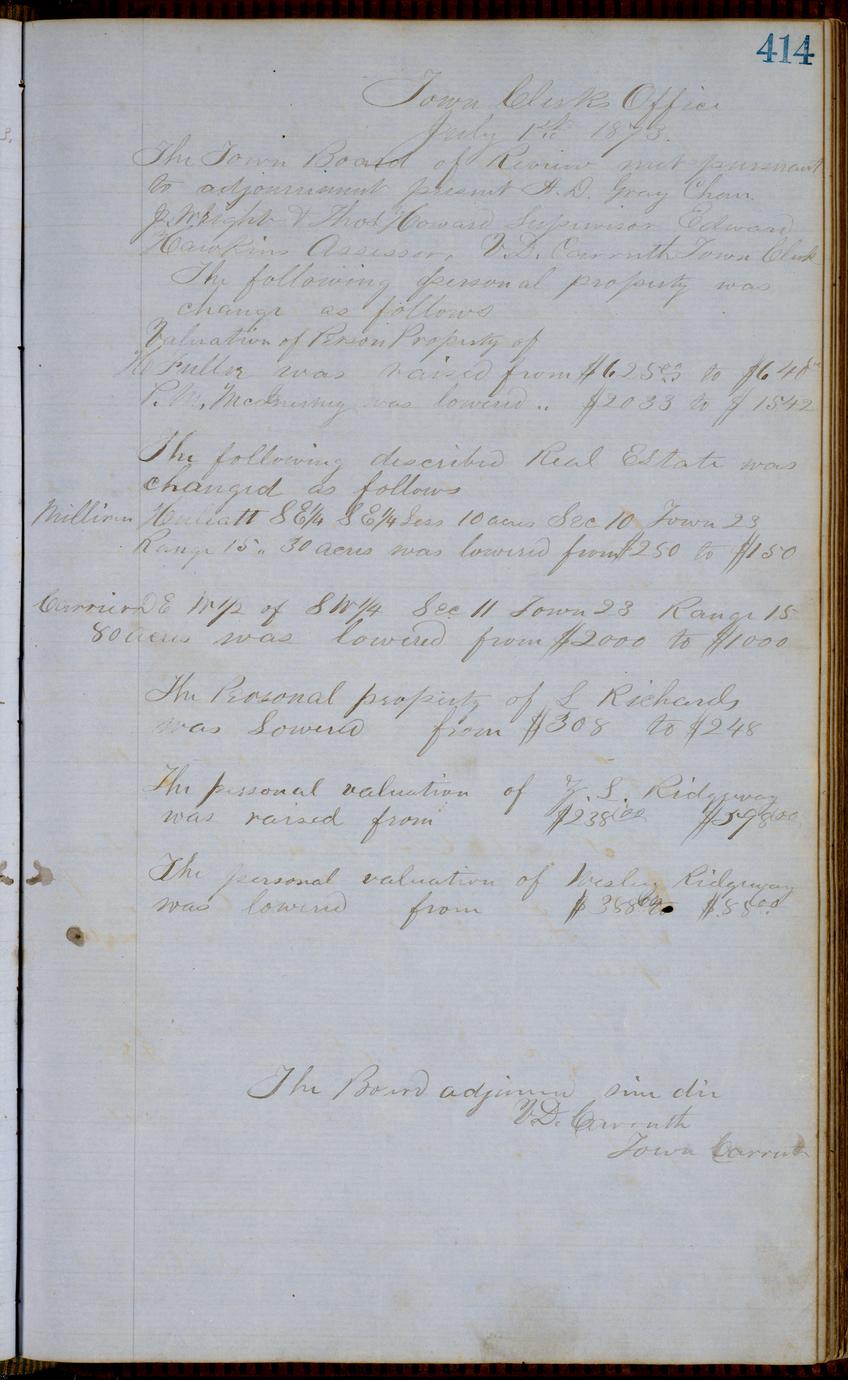 414
Town Clerks Office
July 1st 1873.
The Town Board of Review met pursuant
to adjournment present A.D. Gray Chan.
J. Wright & Thos Howard Supervisor Edward
Hawkins Assessor, V.D. Carruth Town Clerk
The following personal property was
change as follows
Valuation of Person Property of
H Fuller was raised from $625 to $640
P.M. was lowered .. $2033 to $1542
The following described Real Estate was
changed as follows
S E1/4 S E1/4 Less 10 acres Sec 10 Town 23
Range 15 .. 30 acres was lowered from $250 to $150
E W1/2 of S W1/4 Sec 11 Town 23 Range 15
80 acres was lowered from $2000 to $1000
The Personal property of L Richards
was Lowered from $308 to $248
The personal valuation of L. Ridgeway
was raised from $238.00 $598.00
The personal valuation of Wesley Ridgeway
was lowered from $388 to $88.00
The Board adjourned sine die
V.D. Carruth
Town Carruth